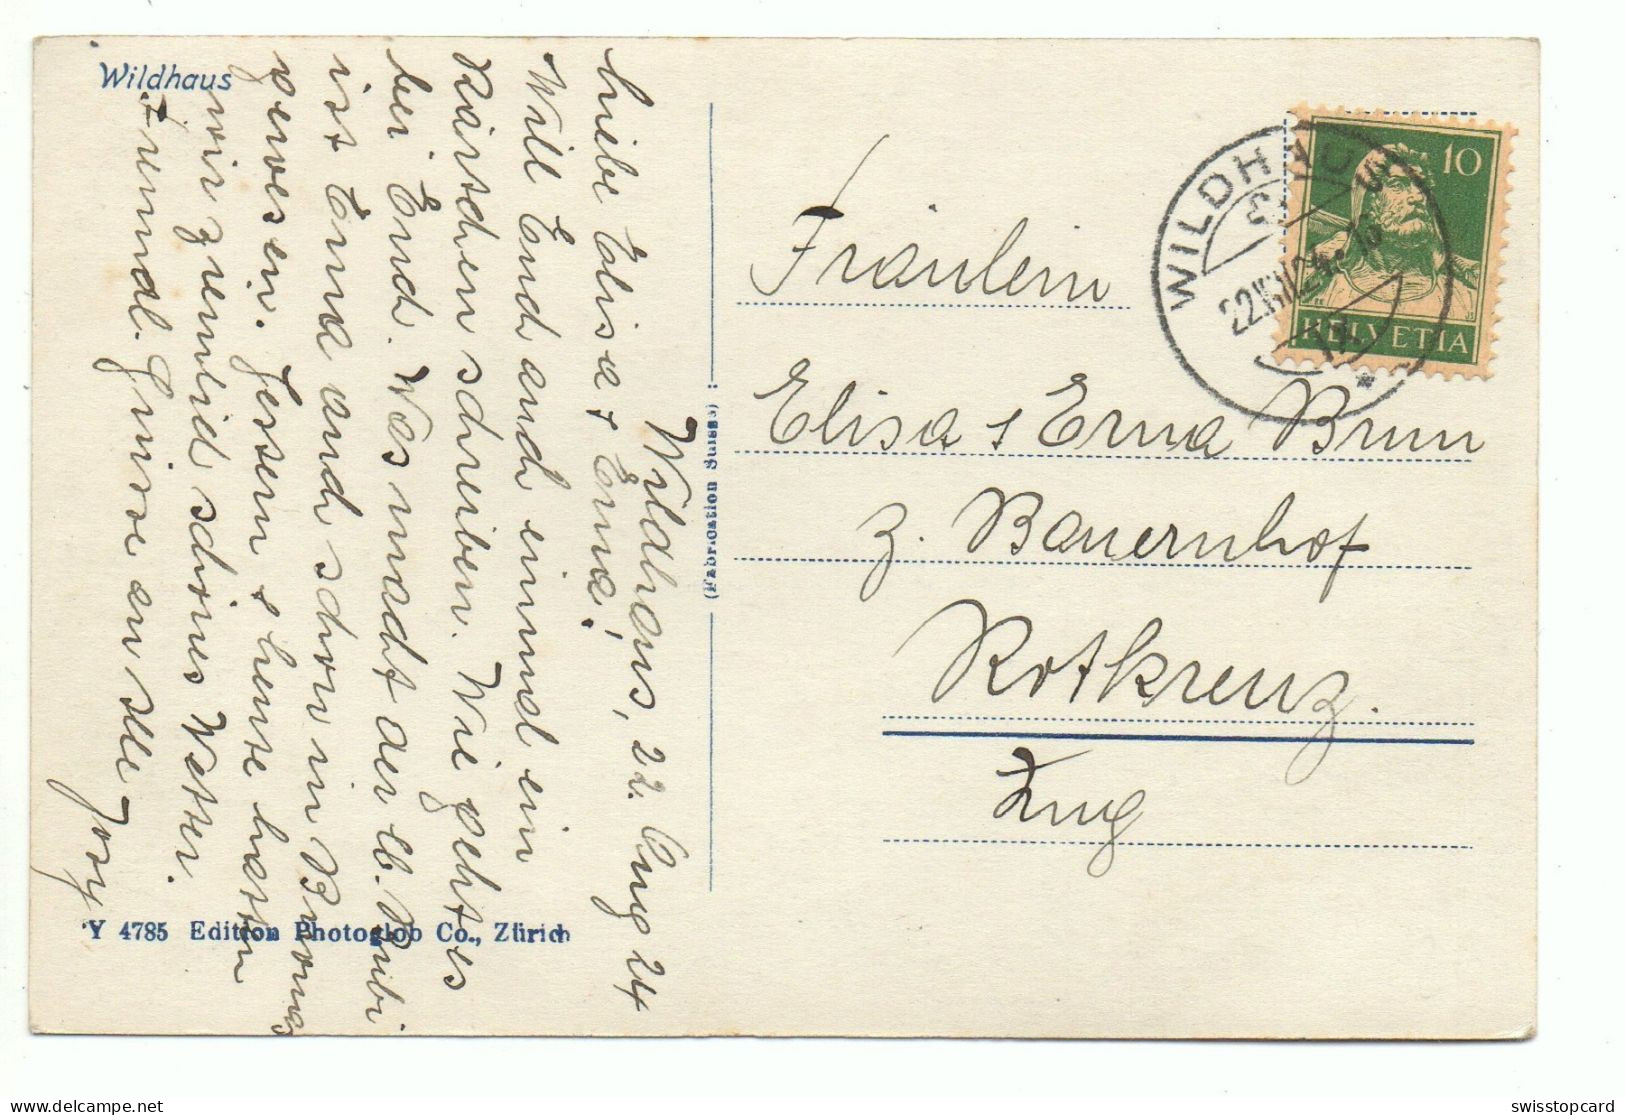 Wildhaus
Wildhaus, 22. Aug 24
Liebe Elisa + Erna!
Will Euch auch einmal ein
Kärtchen schreiben. Wie geht es
bei Euch. Was macht der lb. Ruedi
ist Erna auch schon in
gewesen. Gestern + heute hatten
wir ziemlich schönes Wetter.
Grüsse an Alle
Josy
Y 4785 Edition Photoglob Co., Zürich
(Fabrication Suisse)
WILDHAUS
22.VIII.24
10
HELVETIA
Fräulein
Elisa & Erna Brun
z. Bauernhof
Rotkreuz.
Zug
swisstopcard